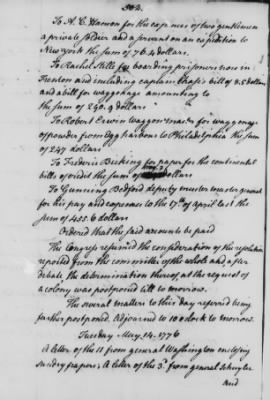 To H. E. for the expences of two gentlemen
a private soldier and a servant on an expedition to
New York the sum of 76.4 dollars.
To Rachel Stille for boarding prisoners now in
Trenton and including captain bill of 8.5 dollars
and a bill for waggonage amounting to
the sum of 240.9 dollars
To Robert Erwin waggon master for waggonage
of powder from Egg harbour to Philadelphia the sum
of 247 dollars
To Frederic Becking for paper for the continental
bills of credit the sum of dollars
To Gunning Bedford deputy muster master general
for his pay and expences to the 17th of april last the
sum of 455.6 dollars
Ordered that the said amounts be paid
The Congress resumed the consideration of the resolution
reported from the committee of the whole and after
debate, the determination thereof, at the request of
a colony was postponed till to morrow.
The several matters to this day referred being
farther postponed. Adjourned to 10 o clock to morrow.
Tuesday May 14. 1776
A letter of the 11 from general Washington enclosing
sundry papers; A letter of the 3d. from general Schuyler
and